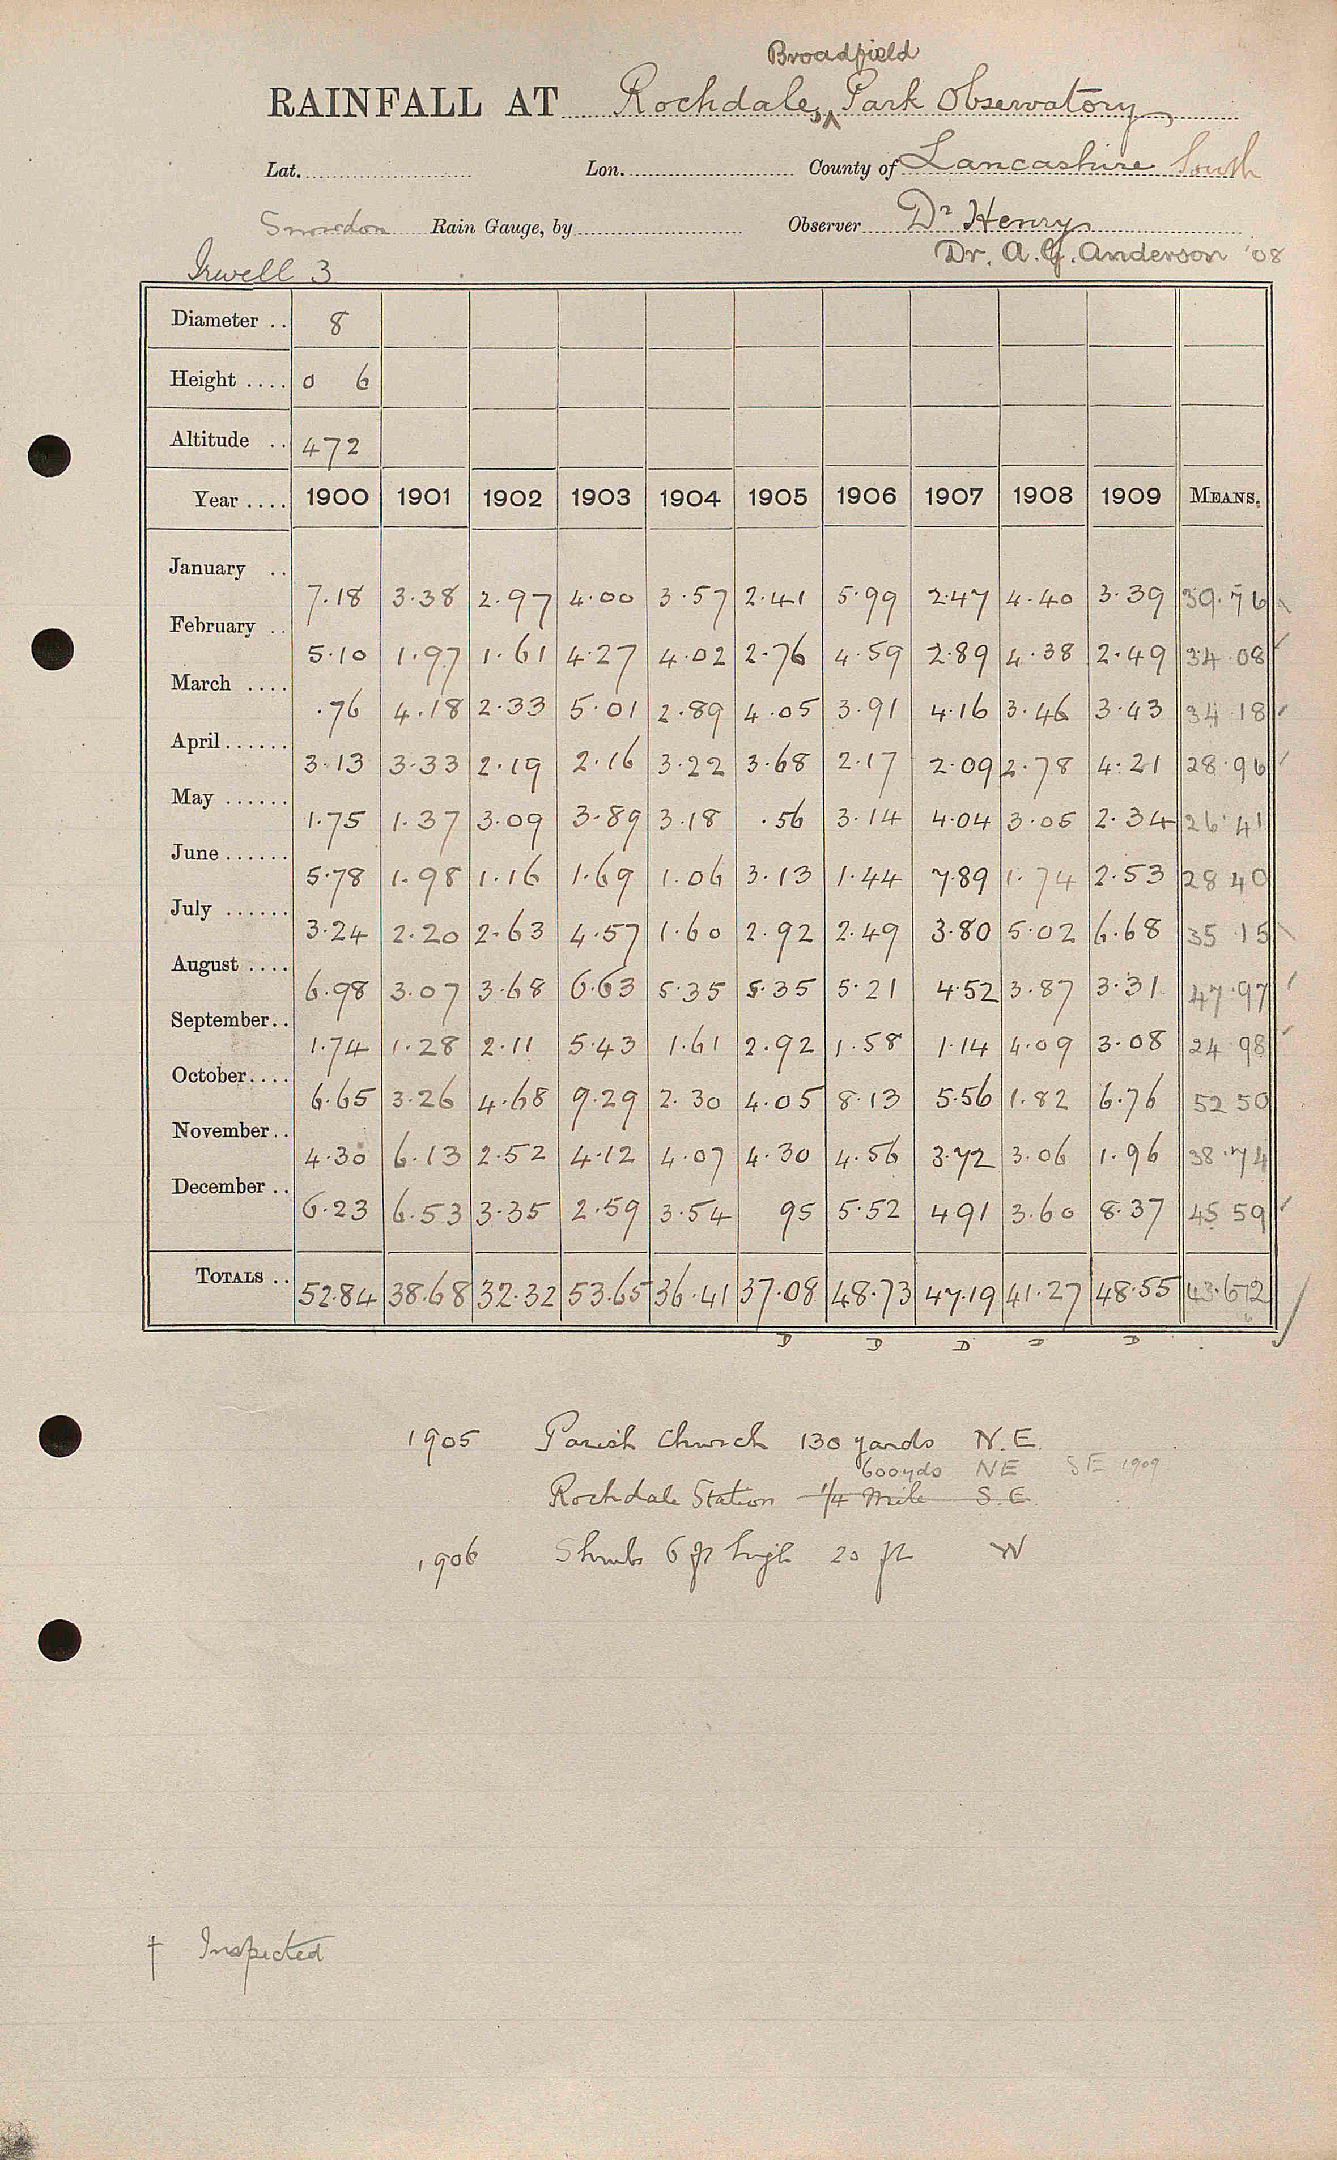 Broadfield
RAINFALL AT Rochdale, ^ Park Observatory
Lat. Lon. County of Lancashire South
Snowdon Rain Gauge, by Observer Dr Henry
Dr. A.G. Anderson '08
Irwell 3
Diameter .. 8
Height .... 0 6
Altitude .. 472
Year .... 1900 1901 1902 1903 1904 1905 1906 1907 1908 1909 MEANS.
January .. 7.18 3.38 2.97 4.00 3.57 2.41 5.99 2.47 4.40 3.39 39.76
February .. 5.10 1.97 1.61 4.27 4.02 2.76 4.59 2.89 4.38 2.49 34 08
March .... .76 4.18 2.33 5.01 2.89 4.05 3.91 4.16 3.46 3.43 34 18
April...... 3.13 3.33 2.19 2.16 3.22 3.68 2.17 2.09 2.78 4.21 28.96
May ...... 1.75 1.37 3.09 3.89 3.18 .56 3.14 4.04 3.05 2.34 26.41
June...... 5.78 1.98 1.16 1.69 1.06 3.13 1.44 7.89 1.74 2.53 28 40
July ...... 3.24 2.20 2.63 4.57 1.60 2.92 2.49 3.80 5.02 6.68 35 15
August .... 6.98 3.07 3.68 6.63 5.35 5.35 5.21 4.52 3.87 3.31 47.97
September.. 1.74 1.28 2.11 5.43 1.61 2.92 1.58 1.14 4.09 3.08 24 98
October.... 6.65 3.26 4.68 9.29 2.30 4.05 8.13 5.56 1.82 6.76 52 50
November.. 4.30 6.13 2.52 4.12 4.07 4.30 4.56 3.72 3.06 1.96 38.74
December .. 6.23 6.53 3.35 2.59 3.54 95 5.52 4.91 3.60 8.37 45 59
TOTALS .. 52.84 38.68 32.32 53.65 36.41 37.08 48.73 47.19 41.27 48.55 43.672
D D D D D
1905 Parish Church 130 yards N.E.
600yds NE SE 1909
Rochdale Station 1/4 Mile S.E.
1906 Shrubs 6 ft high 20 ft W
† Inspected